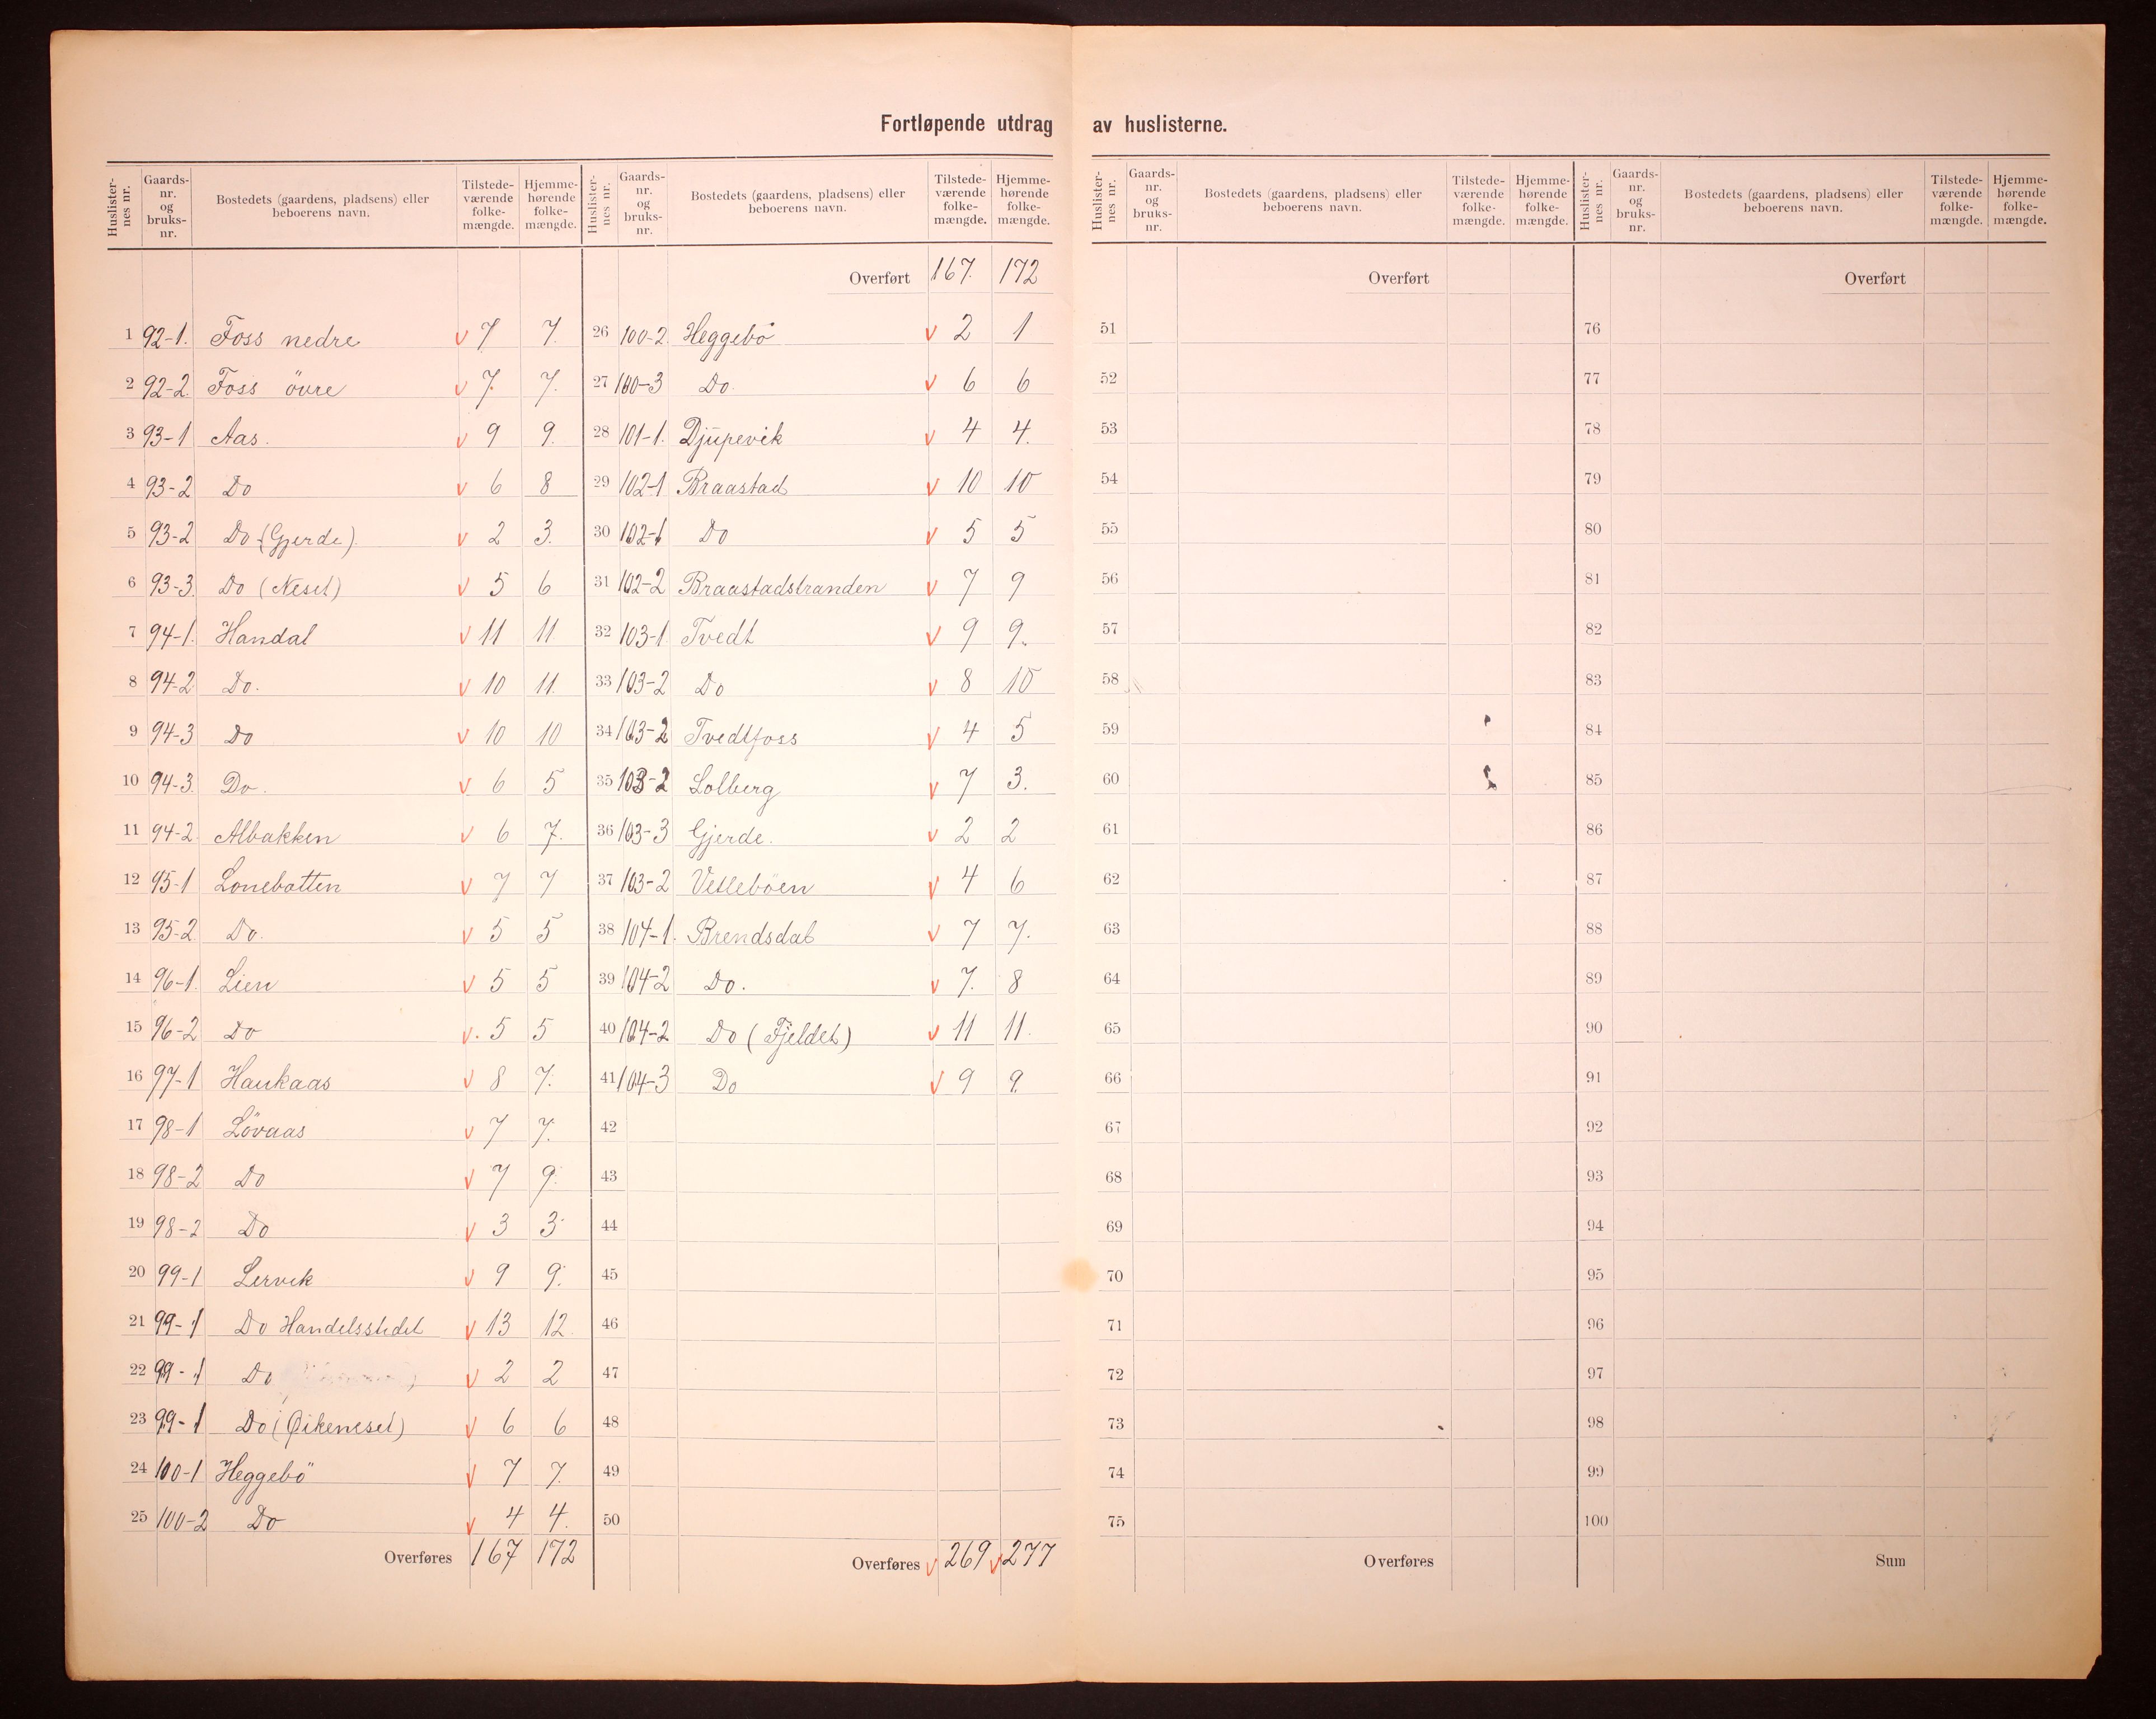 Fortløpende utdrag av huslisterne.
Huslister-nes nr. Gaards-nr. og bruks-nr. Bostedets (gaardens, pladsens) eller beboerens navn. Tilstede-værende folke-mængde. Hjemme-hørende folke-mængde.
1 92-1. Foss nedre v 7 7.
2 92-2. Foss övre v 7. 7.
3 93-1 Aas. v 9 9.
4 93-2 Do v 6 8
5 93-2 Do (Gjerde) v 2 3.
6 93-3. Do (Neset) v 5 6
7 94-1. Handal v 11 11
8 94-2 Do. v 10 11.
9 94-3 Do v 10 10
10 94-3. Do. v 6 5
11 94-2 Albakken v 6 7.
12 95-1 Lonebotten v 7 7
13 95-2 Do. v 5 5
14 96-1. Lien v 5 5
15 96-2 Do v. 5 5
16 97-1 Haukaas v 8 7.
17 98-1 Lövaas v 7 7.
18 98-2 Do v 7 9.
19 98-2 Do v 3 3
20 99-1 Lervik v 9 9.
21 99-1 Do Handelsstedet v 13 12.
22 99-1 Do v 2 2
23 99-1 Do (Øikeneset) v 6 6
24 100-1 Heggebö v 7 7.
25 100-2 Do v 4 4.
Overføres 167 172
Huslister-nes nr. Gaards-nr. og bruks-nr. Bostedets (gaardens, pladsens) eller beboerens navn. Tilstede-værende folke-mængde. Hjemme-hørende folke-mængde.
Overført 167. 172
26 100-2. Heggebö v 2 1
27 100-3 Do. v 6 6
28 101-1. Djupevik v 4 4.
29 102-1 Braastad v 10 10
30 102-1 Do v 5 5
31 102-2 Braastadstranden v 7 9
32 103-1 Tvedt v 9 9.
33 103-2 Do v 8 10
34 103-2 Tvedtfoss v 4 5
35 103-2 Solberg v 7 3.
36 103-3 Gjerde. v 2 2
37 103-2 Vetleböen v 4 6
38 104-1. Brendsdal v 7 7.
39 104-2 Do. v 7. 8
40 104-2 Do (Fjeldet) v 11 11.
41 104-3 Do v 9 9.
42
43
44
45
46
47
48
49
50
Overføres v 269 v 277
Huslister-nes nr. Gaards-nr. og bruks-nr. Bostedets (gaardens, pladsens) eller beboerens navn. Tilstede-værende folke-mængde. Hjemme-hørende folke-mængde.
Overført
51
52
53
54
55
56
57
58
59
60
61
62
63
64
65
66
67
68
69
70
71
72
73
74
75
Overføres
Huslister-nes nr. Gaards-nr. og bruks-nr. Bostedets (gaardens, pladsens) eller beboerens navn. Tilstede-værende folke-mængde. Hjemme-hørende folke-mængde.
Overført
76
77
78
79
80
81
82
83
84
85
86
87
88
89
90
91
92
93
94
95
96
97
98
99
100
Sum